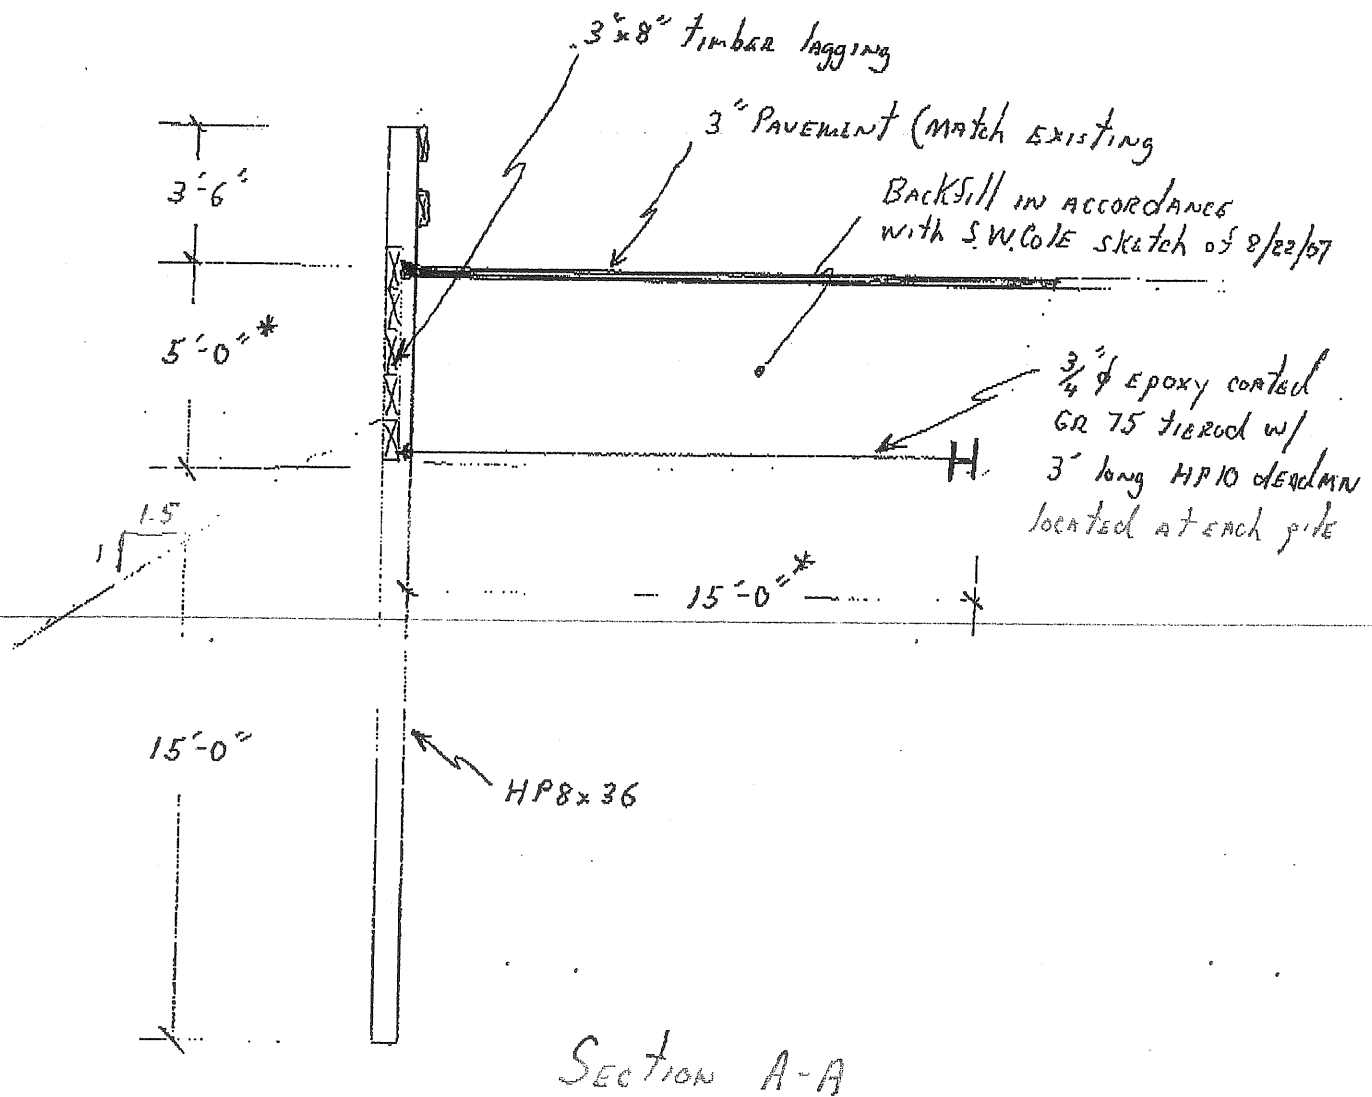 3"x8" timber lagging
3" PAVEMENT (MATCH EXISTING
BACKfill IN ACCORDANCE
with S.W.COLE SKETCH of 8/22/07
3'-6"
5'-0" *
3/4" ϕ EPOXY COATED
GR 75 TIEROD w/
3' long HP10 dEADMN
locATEd AT EACH pile
1.5
1
15'-0" *
15'-0"
HP8x36
SECTION A-A